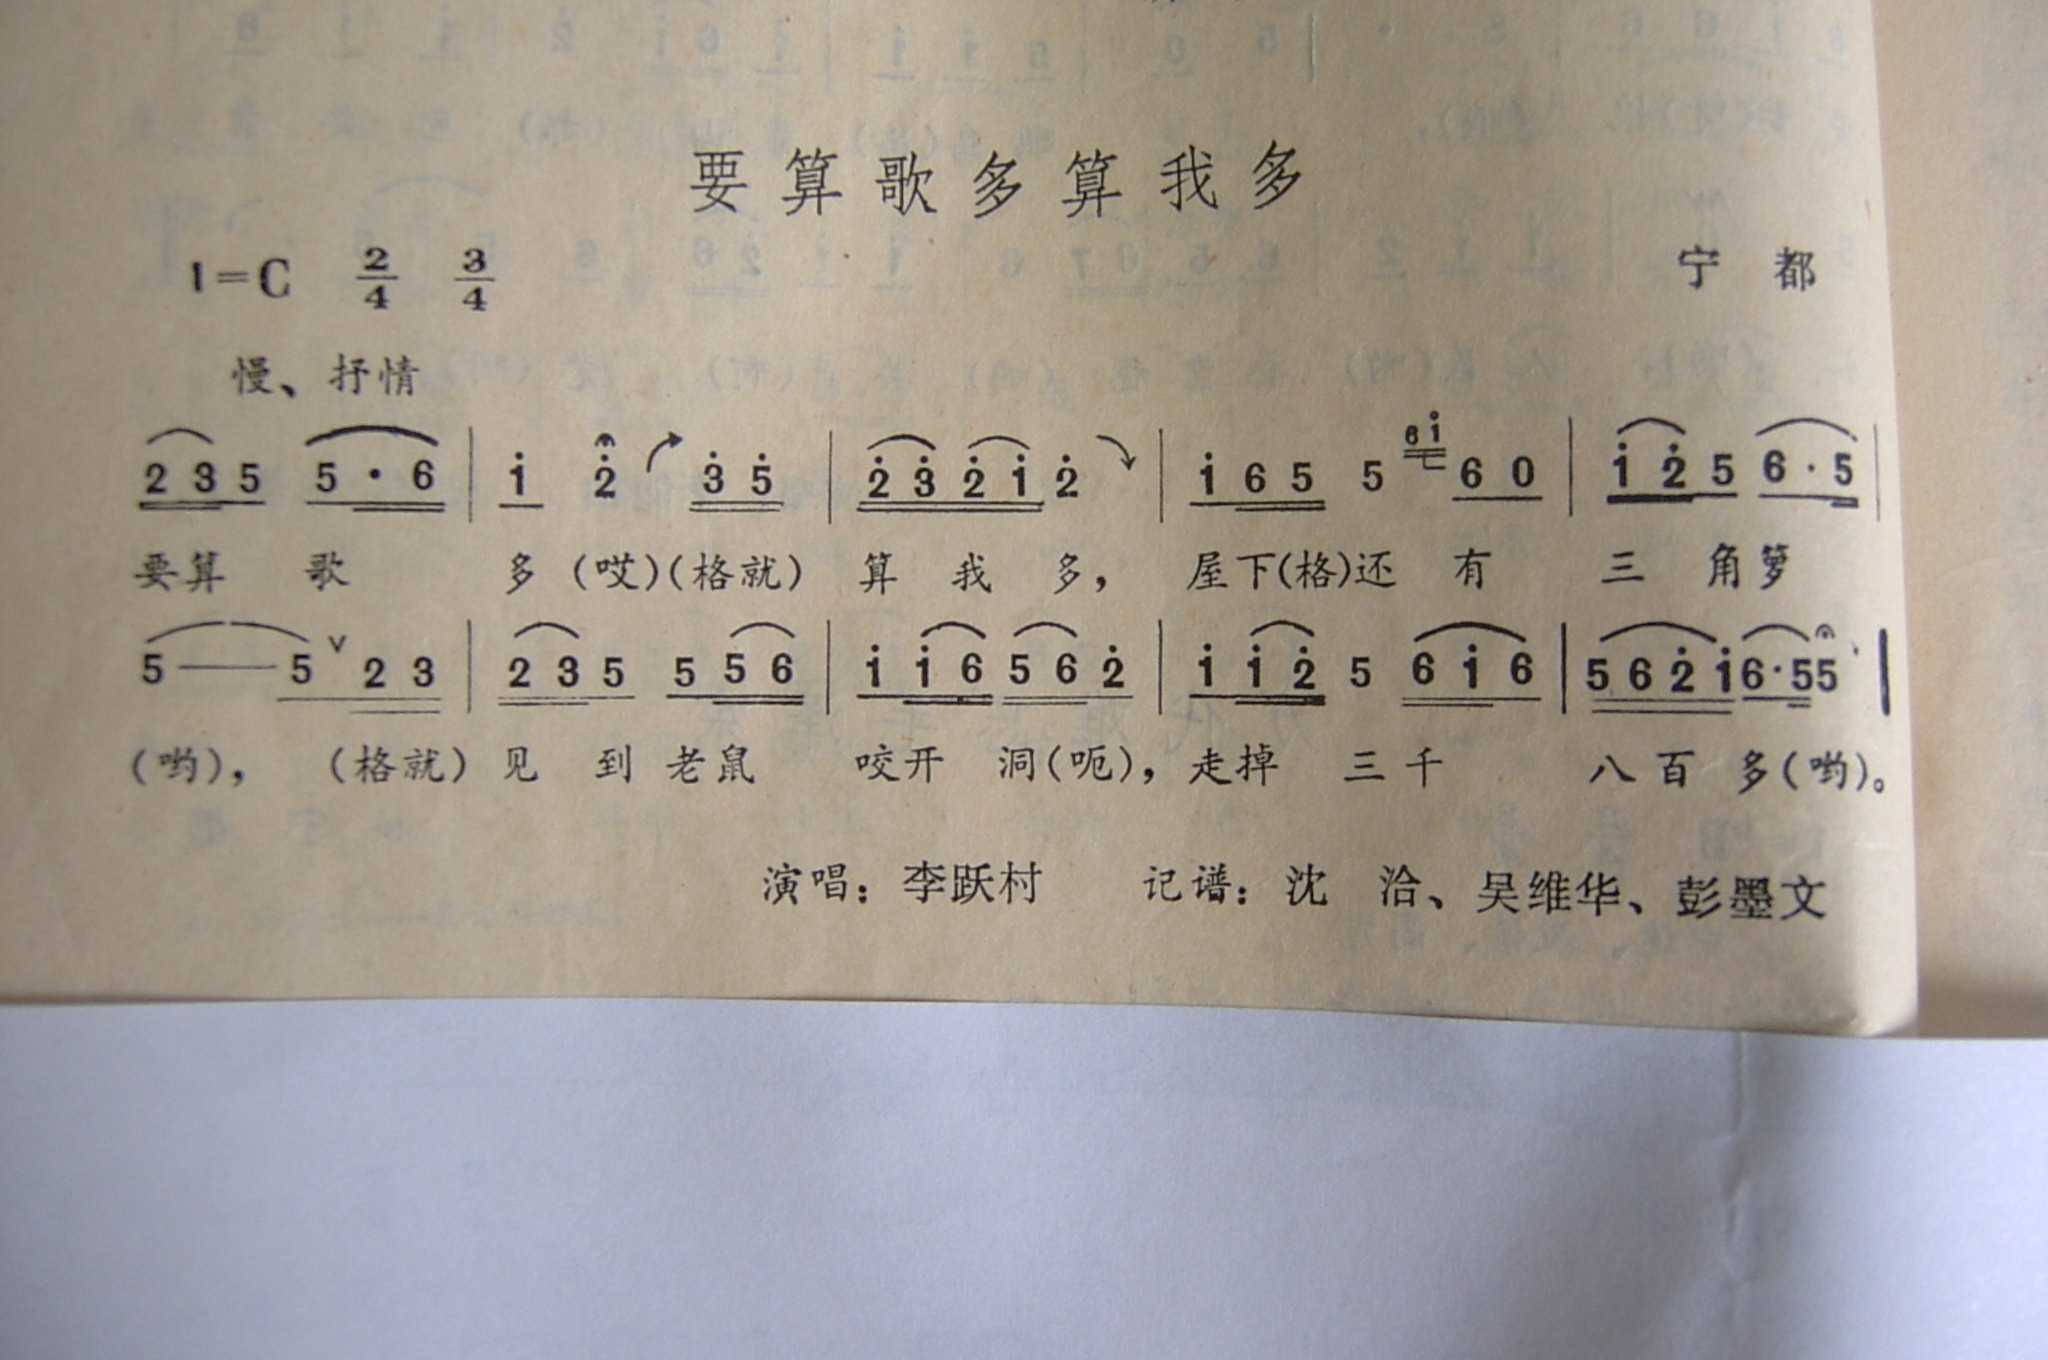 要算歌多算我多
1=C 2/4 3/4 宁都
慢、抒情
2 3 5 5 · 6 | i 2̇ 3̇ 5̇ | 2̇ 3̇ 2̇ i 2̇ | i 6 5 5 6 i 6 0 | i 2̇ 5 6 · 5 |
要算 歌 多 (哎)(格就) 算 我 多， 屋下(格)还 有 三 角箩
5 — 5 ∨ 2 3 | 2 3 5 5 5 6 | i i 6 5 6 2̇ | i i 2̇ 5 6 i 6 | 5 6 2̇ i 6 · 5 5 ‖
(哟)， (格就) 见 到 老鼠 咬开 洞(呃)，走掉 三千 八百 多(哟)。
演唱：李跃村 记谱：沈 洽、吴维华、彭墨文